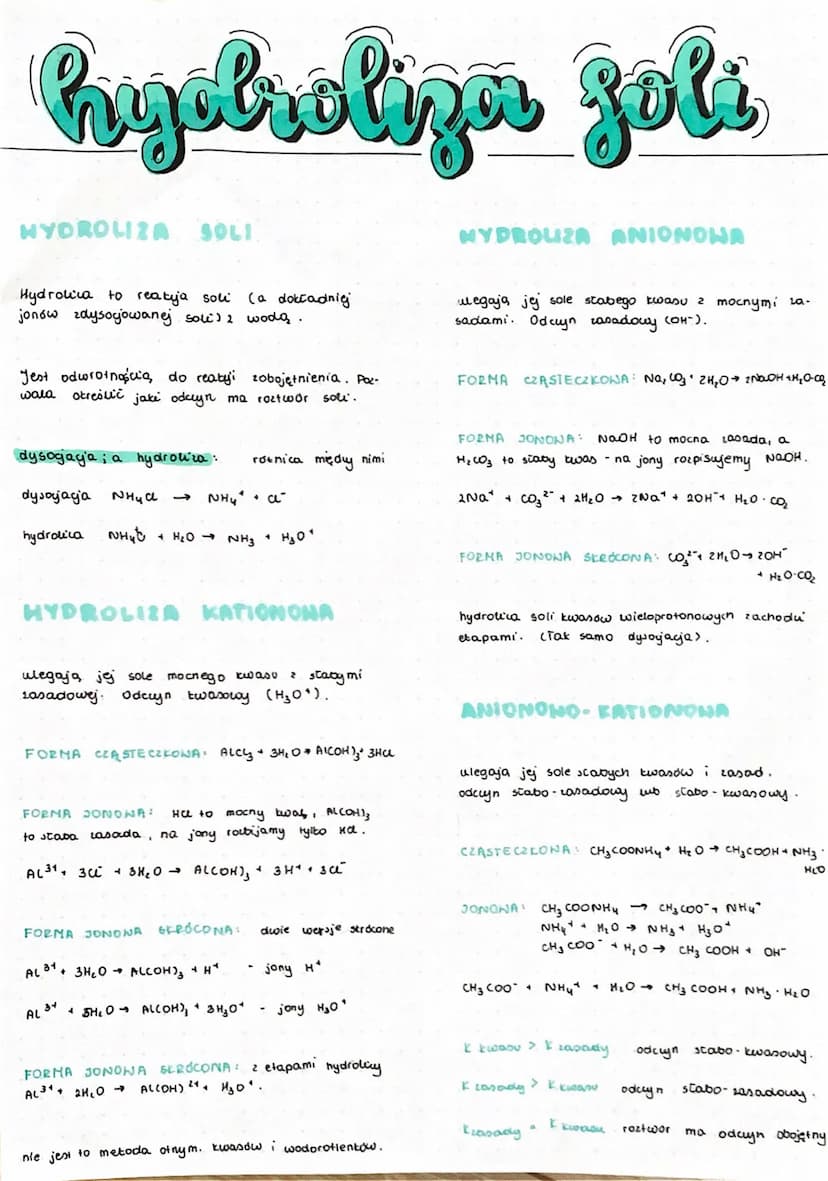 hydroliza soli
HYDROLIZA SOLI
Hydroliza to reakcja soli (a dokładniej
jonów zdysocjowanej soli) z wodą.
Jest odwrotnością do reakcji zobojętnienia. Poz-
wala określić jaki odczyn ma roztwór soli.
dysocjacja; a hydroliza: różnica między nimi
dysocjacja NH₄Cl → NH₄⁺ + Cl⁻
hydroliza + H₂O → NH₃ + H₃O⁺
HYDROLIZA KATIONOWA
ulegają jej sole mocnego kwasu z słabymi
zasadowej. Odczyn kwasowy (H₃O⁺).
FORMA CZĄSTECZKOWA: AlCl₃ + 3H₂O → Al(OH)₃ + 3HCl
FORMA JONOWA: HCl to mocny kwas, Al(OH)₃
to słaba zasada, na jony rozbijamy tylko HCl.
Al³⁺ + 3Cl⁻ + 3H₂O → Al(OH)₃ + 3H⁺ + 3Cl⁻
FORMA JONOWA SKRÓCONA: dwie wersje skrócone
Al³⁺ + 3H₂O → Al(OH)₃ + H⁺ - jony H⁺
Al³⁺ + H₂O → Al(OH)₃ + 3H₃O⁺ - jony H₃O⁺
FORMA JONOWA SKRÓCONA: z etapami hydrolizy
Al³⁺ + 2H₂O → Al(OH)²⁺ + H₃O⁺.
nie jest to metoda otrzym. kwasów i wodorotlenków.
HYDROLIZA ANIONOWA
ulegają jej sole słabego kwasu z mocnymi za-
sadami. Odczyn zasadowy (OH⁻).
FORMA CZĄSTECZKOWA: Na₂CO₃ + 2H₂O → 2NaOH + H₂O·CO₂
FORMA JONOWA: NaOH to mocna zasada, a
H₂CO₃ to słaby kwas - na jony rozpisujemy NaOH.
2Na⁺ + CO₃²⁻ + 2H₂O → 2Na⁺ + 2OH⁻ + H₂O·CO₂
FORMA JONOWA SKRÓCONA: CO₃²⁻ + 2H₂O → 2OH⁻
+ H₂O·CO₂
hydroliza soli kwasów wieloprotonowych zachodzi
etapami. (Tak samo dysocjacja).
ANIONOWO-KATIONOWA
ulegają jej sole słabych kwasów i zasad.
odczyn słabo-zasadowy lub słabo-kwasowy.
CZĄSTECZKOWA: CH₃COONH₄ + H₂O → CH₃COOH + NH₃·
H₂O
JONOWA: CH₃COONH₄ → CH₃COO⁻ + NH₄⁺
NH₄⁺ + H₂O → NH₃ + H₃O⁺
CH₃COO⁻ + H₂O → CH₃COOH + OH⁻
CH₃COO⁻ + NH₄⁺ + H₂O → CH₃COOH + NH₃·H₂O
K kwasu > K zasady odczyn słabo-kwasowy.
K zasady > K kwasu odczyn słabo-zasadowy.
K zasady = K kwasu roztwór ma odczyn obojętny